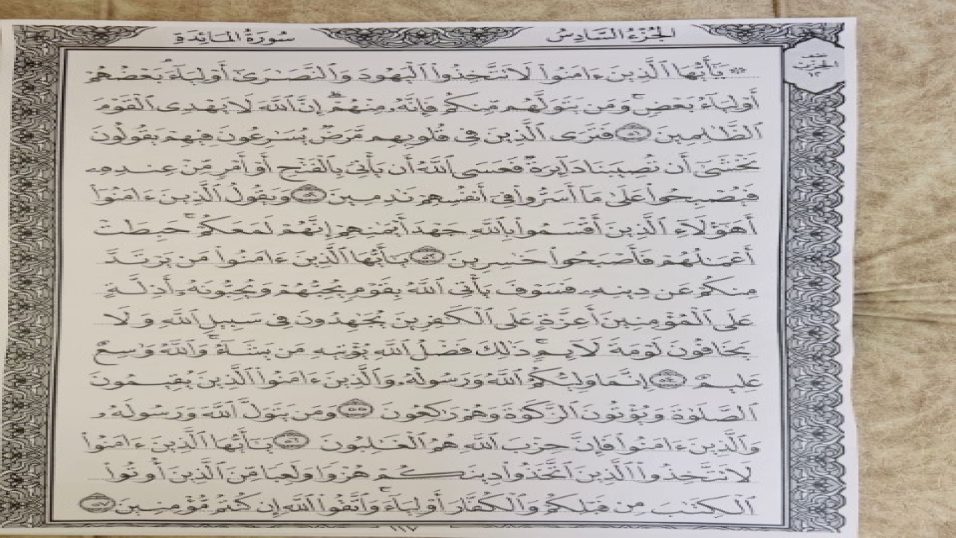 سُورَةُ المَائِدَةِ
الجُزْءُ السَّادِسُ
الحزب
١٢
۞ يَٰٓأَيُّهَا ٱلَّذِينَ ءَامَنُوا۟ لَا تَتَّخِذُوا۟ ٱلْيَهُودَ وَٱلنَّصَٰرَىٰٓ أَوْلِيَآءَ ۘ بَعْضُهُمْ
أَوْلِيَآءُ بَعْضٍ ۚ وَمَن يَتَوَلَّهُم مِّنكُمْ فَإِنَّهُۥ مِنْهُمْ ۗ إِنَّ ٱللَّهَ لَا يَهْدِى ٱلْقَوْمَ
ٱلظَّٰلِمِينَ ٥١ فَتَرَى ٱلَّذِينَ فِى قُلُوبِهِم مَّرَضٌ يُسَٰرِعُونَ فِيهِمْ يَقُولُونَ
نَخْشَىٰٓ أَن تُصِيبَنَا دَآئِرَةٌ ۚ فَعَسَى ٱللَّهُ أَن يَأْتِىَ بِٱلْفَتْحِ أَوْ أَمْرٍ مِّنْ عِندِهِۦ
فَيُصْبِحُوا۟ عَلَىٰ مَآ أَسَرُّوا۟ فِىٓ أَنفُسِهِمْ نَٰدِمِينَ ٥٢ وَيَقُولُ ٱلَّذِينَ ءَامَنُوٓا۟
أَهَٰٓؤُلَآءِ ٱلَّذِينَ أَقْسَمُوا۟ بِٱللَّهِ جَهْدَ أَيْمَٰنِهِمْ ۙ إِنَّهُمْ لَمَعَكُمْ ۚ حَبِطَتْ
أَعْمَٰلُهُمْ فَأَصْبَحُوا۟ خَٰسِرِينَ ٥٣ يَٰٓأَيُّهَا ٱلَّذِينَ ءَامَنُوا۟ مَن يَرْتَدَّ
مِنكُمْ عَن دِينِهِۦ فَسَوْفَ يَأْتِى ٱللَّهُ بِقَوْمٍ يُحِبُّهُمْ وَيُحِبُّونَهُۥٓ أَذِلَّةٍ
عَلَى ٱلْمُؤْمِنِينَ أَعِزَّةٍ عَلَى ٱلْكَٰفِرِينَ يُجَٰهِدُونَ فِى سَبِيلِ ٱللَّهِ وَلَا
يَخَافُونَ لَوْمَةَ لَآئِمٍ ۚ ذَٰلِكَ فَضْلُ ٱللَّهِ يُؤْتِيهِ مَن يَشَآءُ ۚ وَٱللَّهُ وَٰسِعٌ
عَلِيمٌ ٥٤ إِنَّمَا وَلِيُّكُمُ ٱللَّهُ وَرَسُولُهُۥ وَٱلَّذِينَ ءَامَنُوا۟ ٱلَّذِينَ يُقِيمُونَ
ٱلصَّلَوٰةَ وَيُؤْتُونَ ٱلزَّكَوٰةَ وَهُمْ رَٰكِعُونَ ٥٥ وَمَن يَتَوَلَّ ٱللَّهَ وَرَسُولَهُۥ
وَٱلَّذِينَ ءَامَنُوا۟ فَإِنَّ حِزْبَ ٱللَّهِ هُمُ ٱلْغَٰلِبُونَ ٥٦ يَٰٓأَيُّهَا ٱلَّذِينَ ءَامَنُوا۟
لَا تَتَّخِذُوا۟ ٱلَّذِينَ ٱتَّخَذُوا۟ دِينَكُمْ هُزُوًا وَلَعِبًا مِّنَ ٱلَّذِينَ أُوتُوا۟
ٱلْكِتَٰبَ مِن قَبْلِكُمْ وَٱلْكُفَّارَ أَوْلِيَآءَ ۚ وَٱتَّقُوا۟ ٱللَّهَ إِن كُنتُم مُّؤْمِنِينَ ٥٧
١١٧